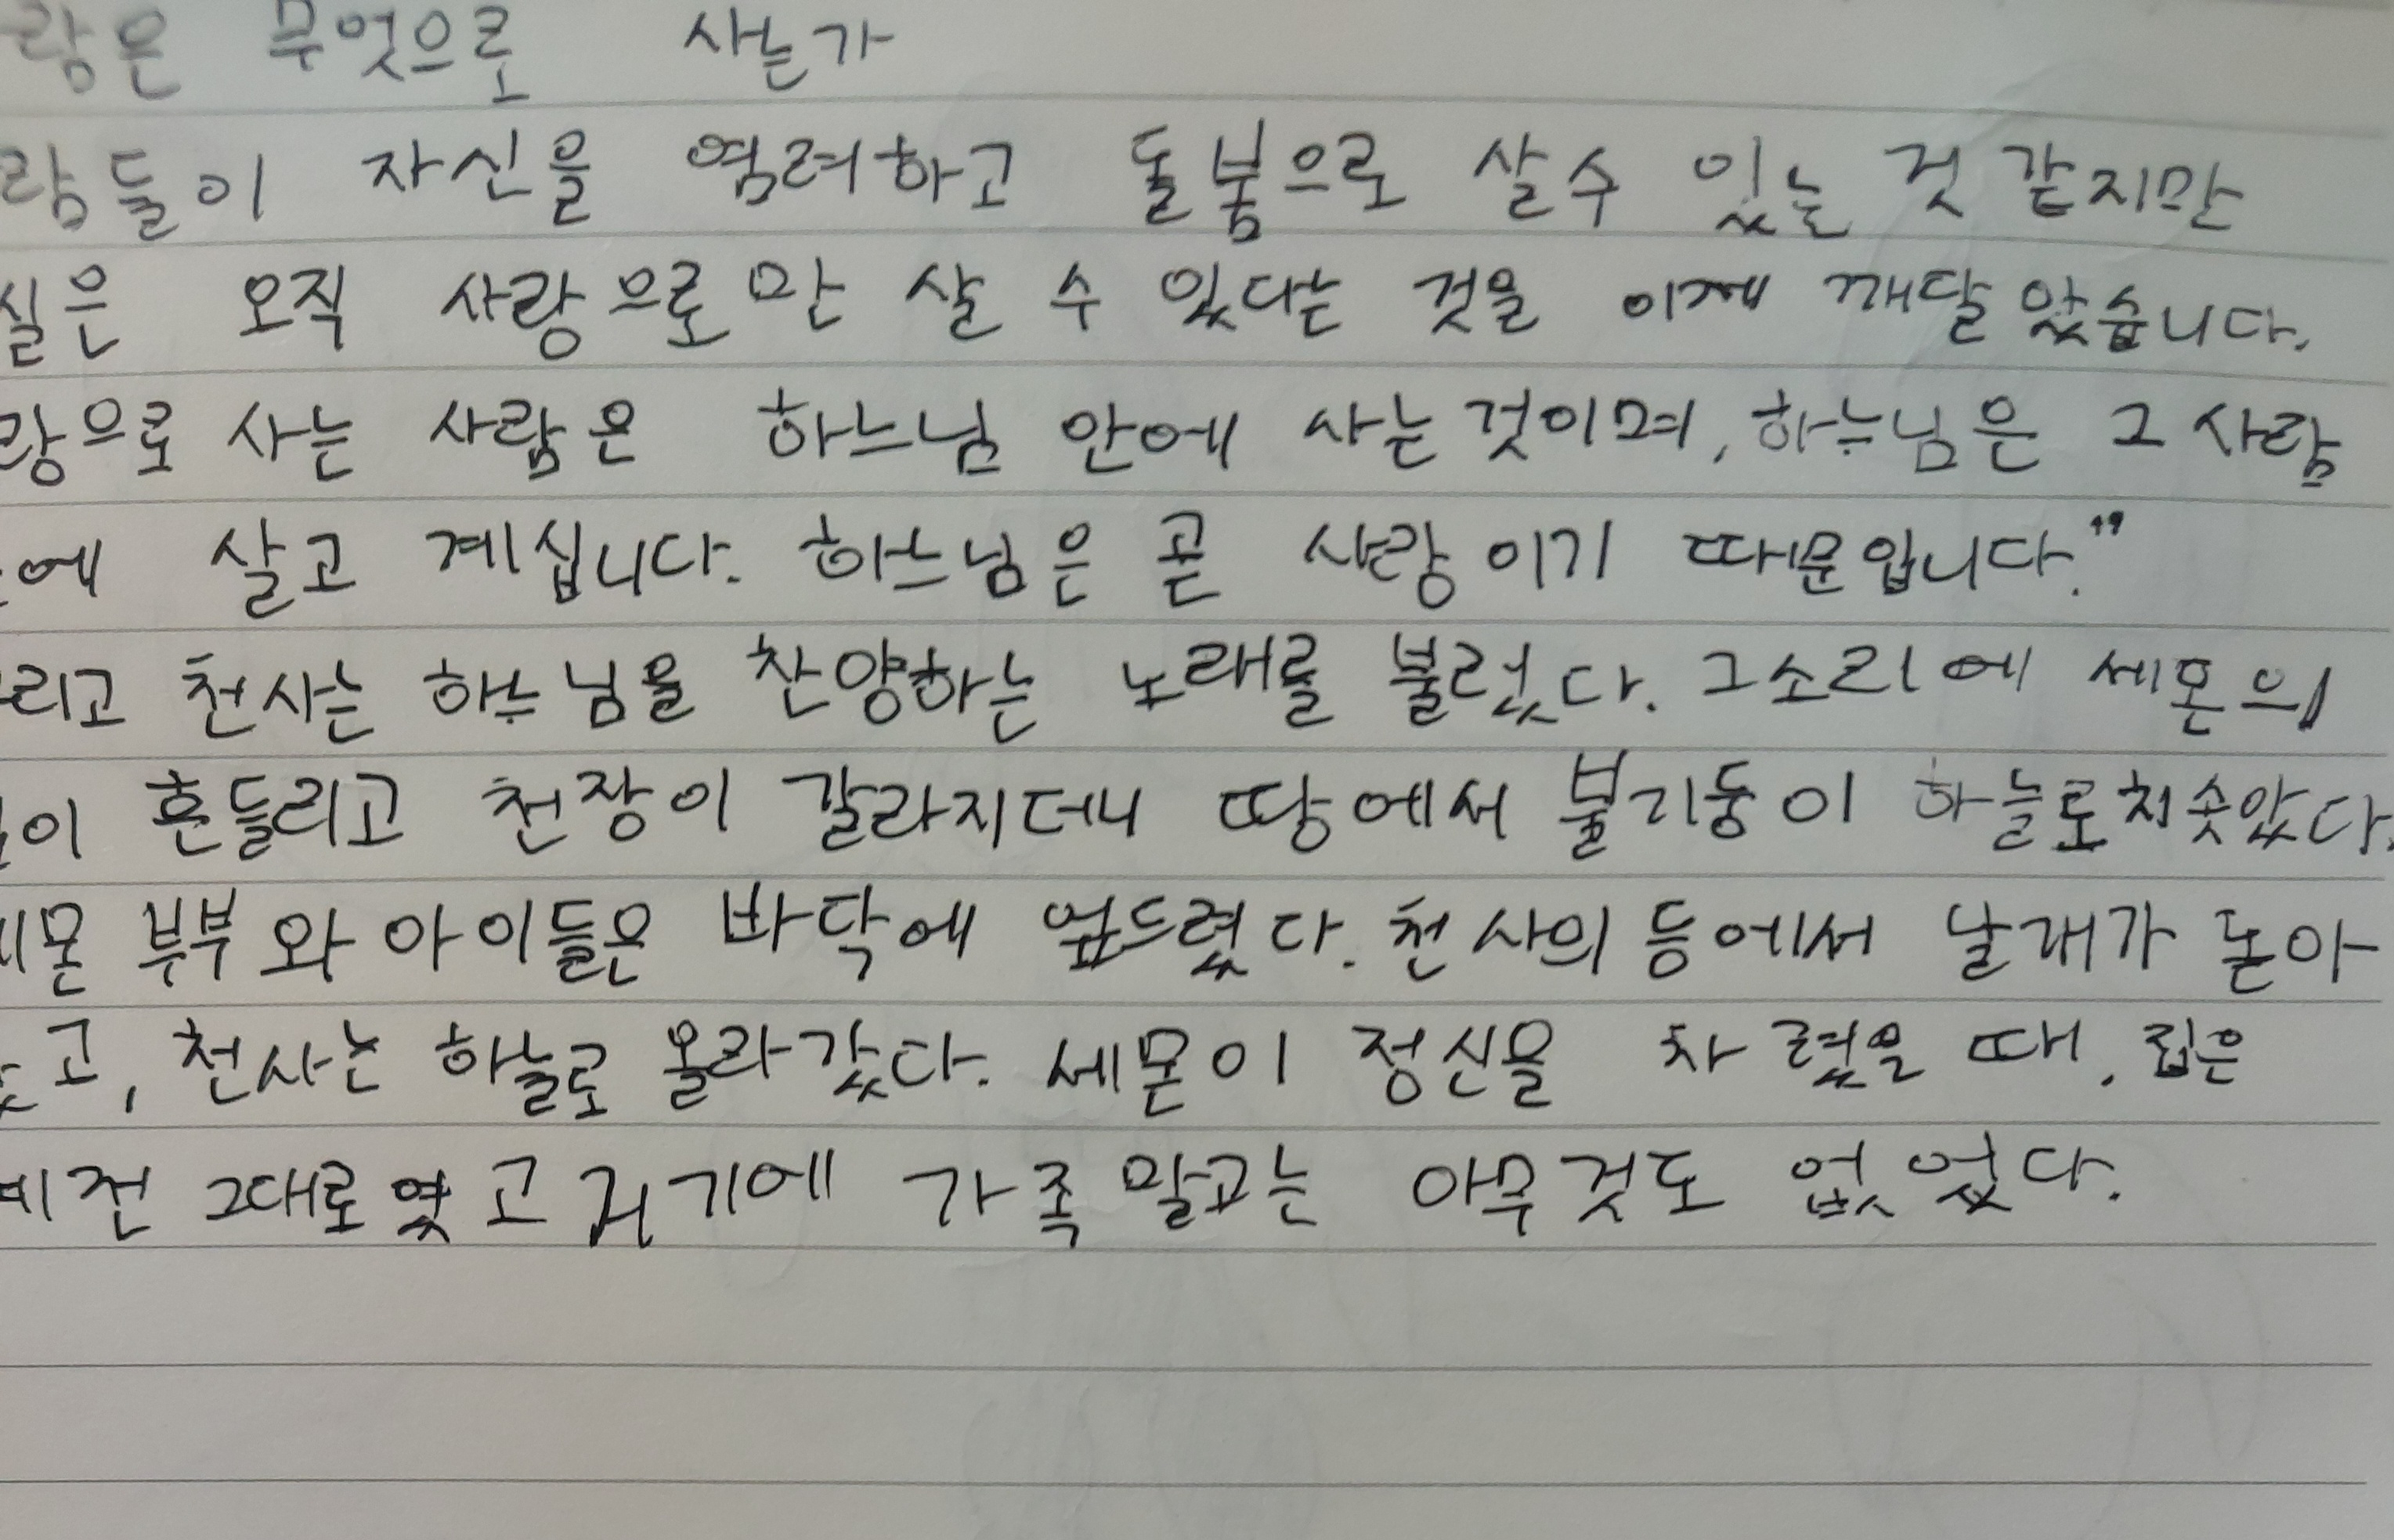 람은 무엇으로 사는가
람들이 자신을 염려하고 돌봄으로 살수 있는 것 같지만
실은 오직 사랑으로만 살 수 있다는 것을 이제 깨달았습니다.
랑으로 사는 사람은 하느님 안에 사는것이며, 하느님은 그 사람
에 살고 계십니다. 하느님은 곧 사랑이기 때문입니다."
리고 천사는 하느님을 찬양하는 노래를 불렀다. 그소리에 세몬의
이 흔들리고 천장이 갈라지더니 땅에서 불기둥이 하늘로 치솟았다.
몬 부부와 아이들은 바닥에 엎드렸다. 천사의 등에서 날개가 돋아
고, 천사는 하늘로 올라갔다. 세몬이 정신을 차렸을 때, 집은
전 그대로였고 거기에 가족말고는 아무것도 없었다.